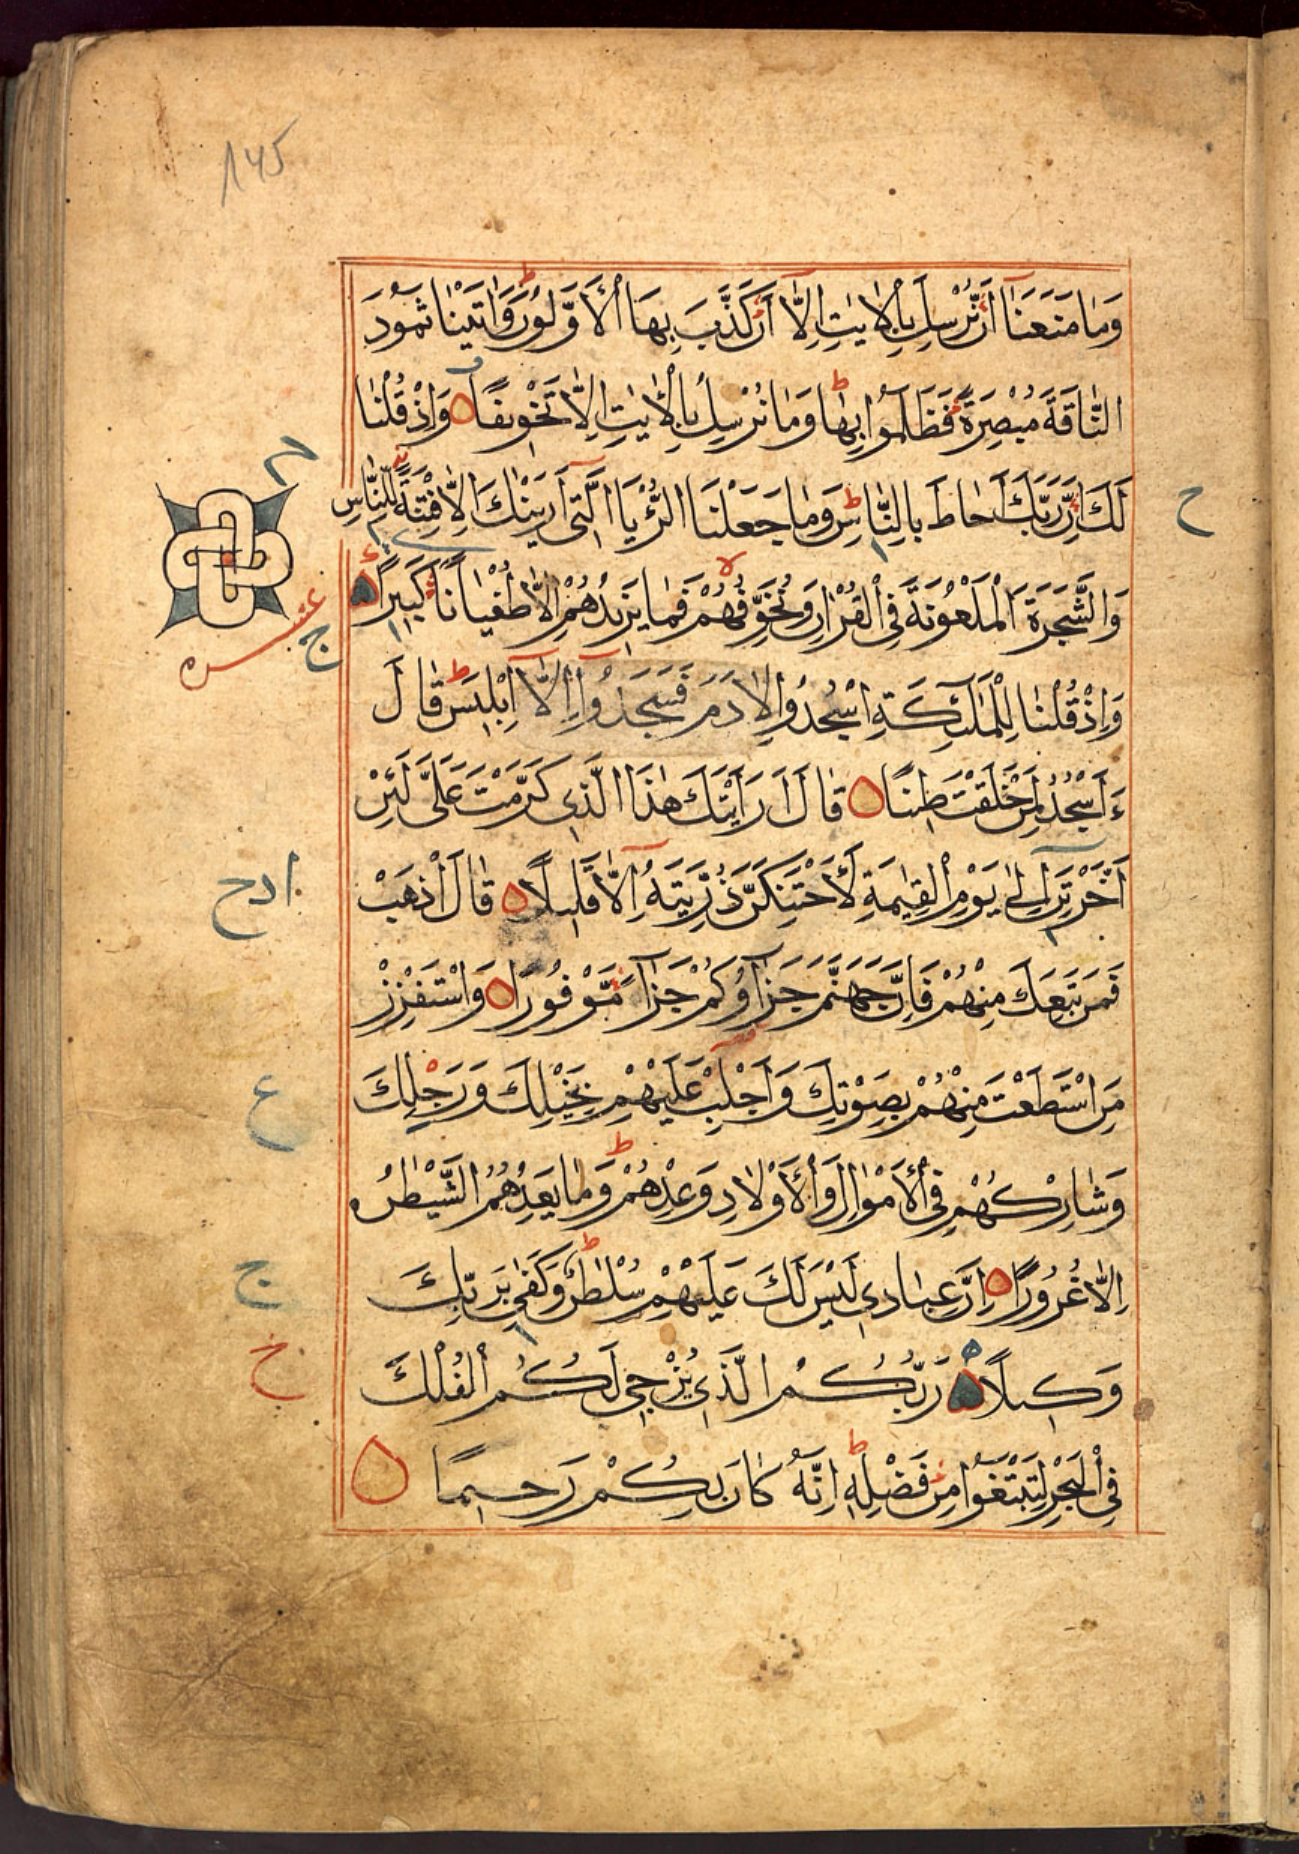 145
وَمَا مَنَعَنَا أَنْ نُرْسِلَ بِالْاٰيٰتِ اِلَّا اَنْ كَذَّبَ بِهَا الْاَوَّلُونَ ط وَاٰتَيْنَا ثَمُودَ
النَّاقَةَ مُبْصِرَةً فَظَلَمُوا بِهَا ط وَمَا نُرْسِلُ بِالْاٰيٰتِ اِلَّا تَخْوِيفًا وَاِذْ قُلْنَا
لَكَ اِنَّ رَبَّكَ اَحَاطَ بِالنَّاسِ ط وَمَا جَعَلْنَا الرُّءْيَا الَّتِي اَرَيْنٰكَ اِلَّا فِتْنَةً لِلنَّاسِ
ح
وَالشَّجَرَةَ الْمَلْعُونَةَ فِي الْقُرْاٰنِ وَنُخَوِّفُهُمْ لا فَمَا يَزِيدُهُمْ اِلَّا طُغْيَانًا كَبِيرًا
عشره
ج
وَاِذْ قُلْنَا لِلْمَلٰٓئِكَةِ اسْجُدُوا لِاٰدَمَ فَسَجَدُوا اِلَّا اِبْلِيسَ ط قَالَ
ءَاَسْجُدُ لِمَنْ خَلَقْتَ طِينًا قَالَ اَرَاَيْتَكَ هٰذَا الَّذِي كَرَّمْتَ عَلَيَّ لَئِنْ
اَخَّرْتَنِ اِلٰى يَوْمِ الْقِيٰمَةِ لَاَحْتَنِكَنَّ ذُرِّيَّتَهُ اِلَّا قَلِيلًا قَالَ اذْهَبْ
ادح
فَمَنْ تَبِعَكَ مِنْهُمْ فَاِنَّ جَهَنَّمَ جَزَآؤُكُمْ جَزَآءً مَوْفُورًا وَاسْتَفْزِزْ
مَنِ اسْتَطَعْتَ مِنْهُمْ بِصَوْتِكَ وَاَجْلِبْ عَلَيْهِمْ بِخَيْلِكَ وَرَجِلِكَ
ع
وَشَارِكْهُمْ فِي الْاَمْوَالِ وَالْاَوْلَادِ وَعِدْهُمْ ط وَمَا يَعِدُهُمُ الشَّيْطٰنُ
اِلَّا غُرُورًا اِنَّ عِبَادِي لَيْسَ لَكَ عَلَيْهِمْ سُلْطٰنٌ ط وَكَفٰى بِرَبِّكَ
ج
وَكِيلًا رَبُّكُمُ الَّذِي يُزْجِي لَكُمُ الْفُلْكَ
خ
فِي الْبَحْرِ لِتَبْتَغُوا مِنْ فَضْلِهِ ط اِنَّهُ كَانَ بِكُمْ رَحِيمًا